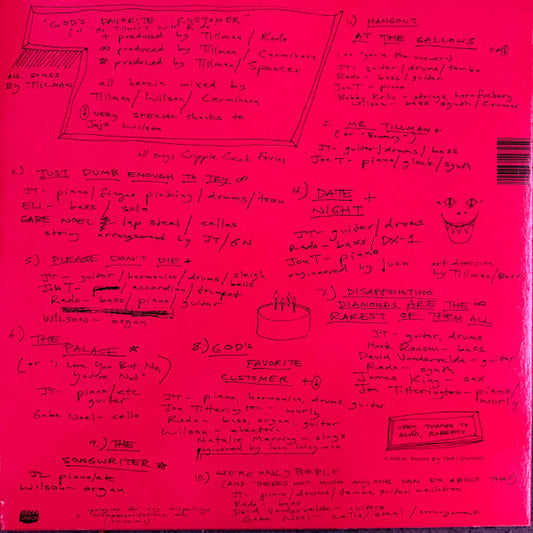 "GOD'S FAVORITE CUSTOMER"
+ produced by Tillman/Rado
∞ produced by Tillman/Cerminara
* produced by Tillman/Spencer
all herein mixed by
Tillman/Wilson/Cerminara
VERY SPECIAL Thanks to
Wilson
ALL SONGS
BY TILLMAN
all songs Cripple Creek Fairies
1.) HANGOUT
AT THE GALLOWS
JT- guitar/drums/tambo
Rado- bass/guitar
Jon T- piano
Bobby Krlic- strings, hornfuckery
Wilson- bass synth/Crumar
2. MR. TILLMAN +
JT- guitar/drums/bass
Jon T- piano/glock/synth
3.) JUST DUMB ENOUGH TO TRY ∞
JT- piano/finger picking/drums/tron
ELI- bass/solo
GABE NOEL- lap steel/cellos
string arrangement by JT/GN
4.) DATE +
NIGHT
JT- guitar/drums
Rado- bass/DX-1
Jon T- piano
engineered by Juan
art direction
by Tillman/Bear
5.) PLEASE DON'T DIE +
JT- guitar/harmonica/drums/sleigh
bells
Jon T- accordian/trumpet
Rado- bass/piano/guitar
Wilson- organ
6.) THE
PALACE *
(or "I Love You But No,
You're Not")
JT- piano/etc
guitar
Gabe Noel- cello
7.) DISAPPOINTING
DIAMONDS ARE THE ∞
RAREST OF THEM ALL
JT- guitar, drums
Mark Ronson- bass
David Vandervelde- guitar
Rado- synth
James King- sax
Jon Titterington- piano/
wurly
8.) GOD'S
FAVORITE
CUSTOMER +
JT- piano, harmonica, drums, guitar
Jon Titterington- wurly
Rado- bass, organ, guitar
Wilson- electric
Natalie Mering- sings
engineered by Juan Wiggman
VERY THANKS TO
ALAN ROBERTO
9.) THE
SONGWRITER *
JT- piano/etc
Wilson- organ
10.) WE'RE ONLY PEOPLE
(AND THERE'S NOT MUCH ANYONE CAN DO ABOUT THAT)
JT- piano/drums/tambo, guitar, mellotron
Rado- bass
David Vandervelde- guitars
Gabe Noel- cello/etc/arrangement
* apologies for any misspellings